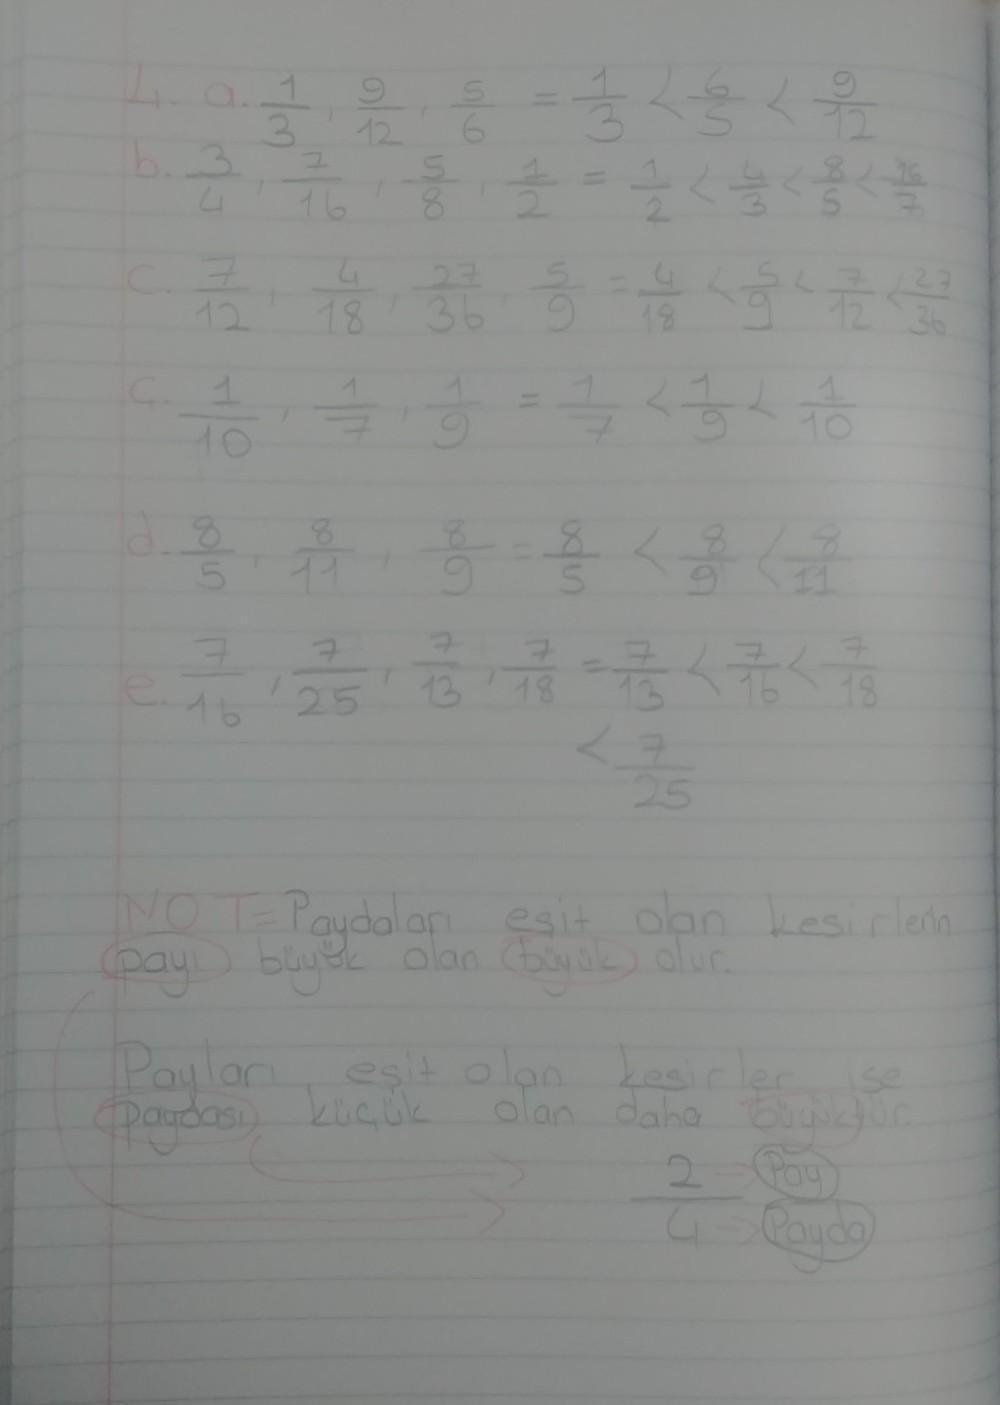 4. a. 1/3, 9/12, 5/6 = 1/3 < 6/5 < 9/12
b. 3/4, 7/16, 5/8, 1/2 = 1/2 < 4/3 < 8/5 < 16/7
c. 7/12, 4/18, 27/36, 5/9 = 4/18 < 5/9 < 7/12 < 27/36
ç. 1/10, 1/7, 1/9 = 1/7 < 1/9 < 1/10
d. 8/5, 8/11, 8/9 = 8/5 < 8/9 < 8/11
e. 7/16, 7/25, 7/13, 7/18 = 7/13 < 7/16 < 7/18
< 7/25
NOT= Paydaları eşit olan kesirlerin
payı büyük olan büyük olur.
Payları eşit olan kesirler ise
paydası küçük olan daha büyüktür.
2 → Pay
4 → Payda